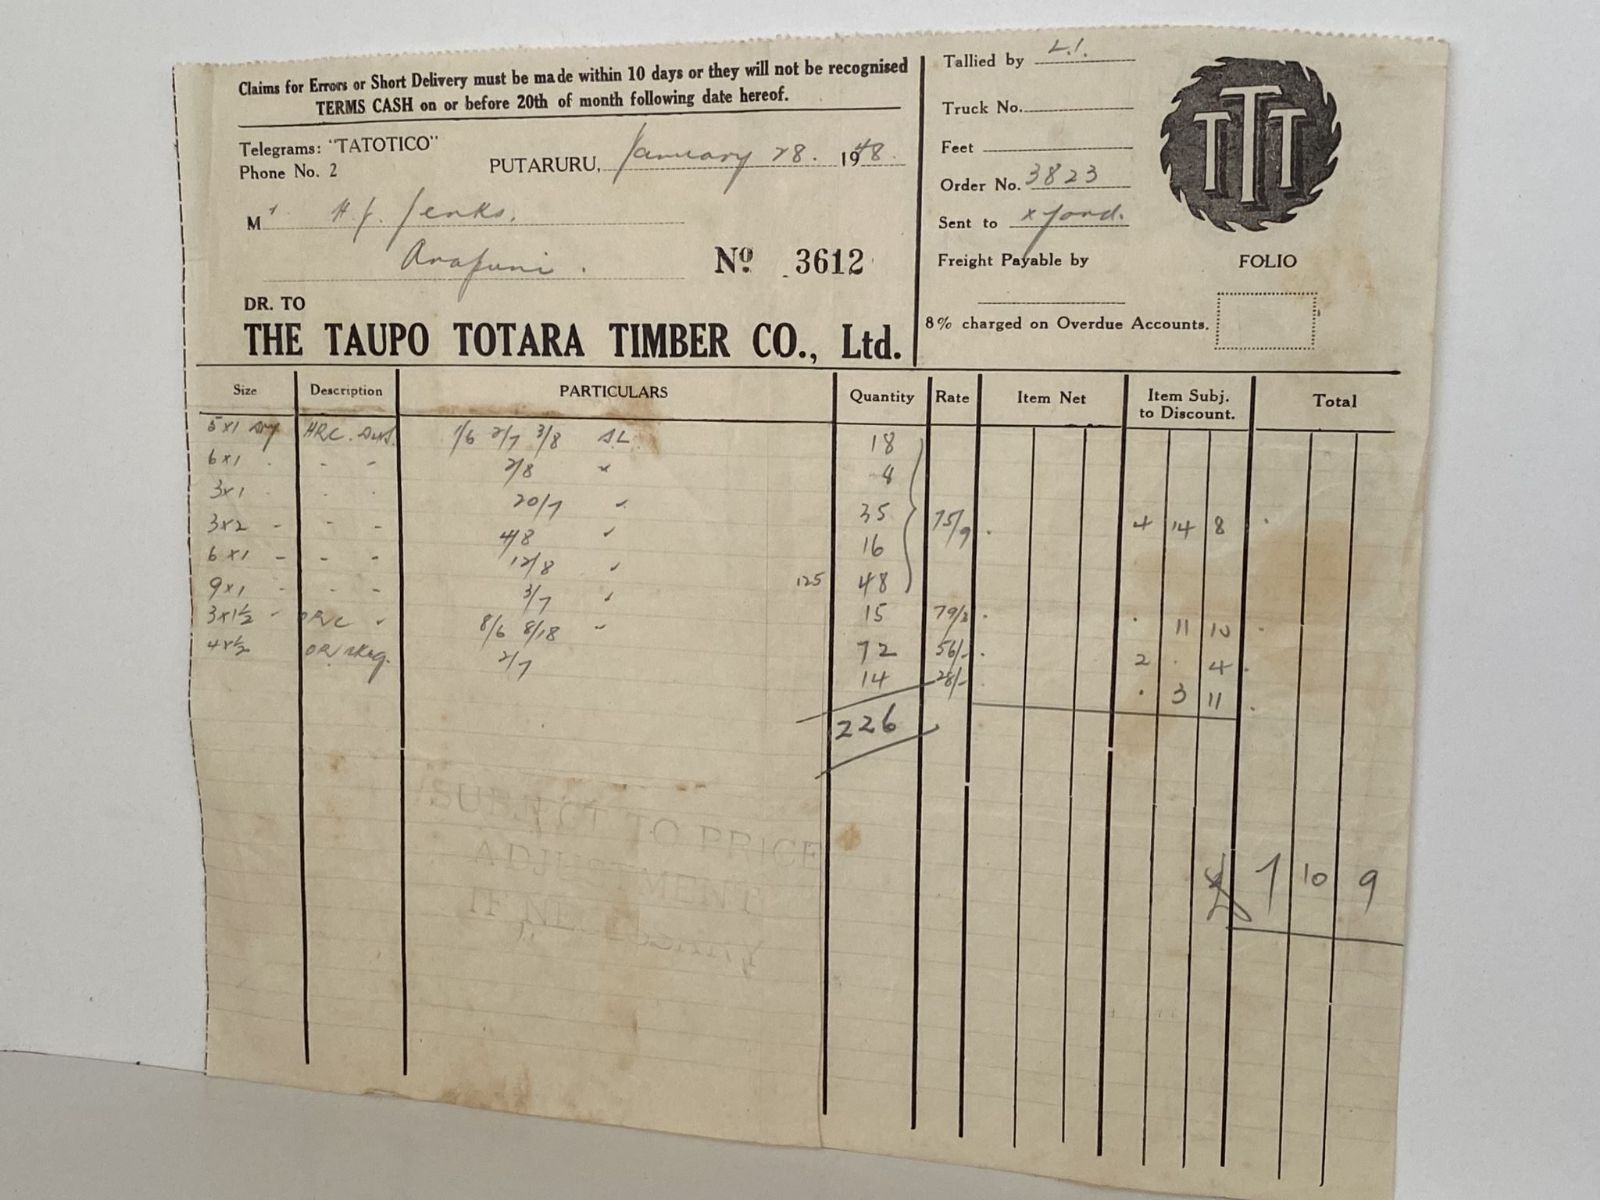 Claims for Errors or Short Delivery must be made within 10 days or they will not be recognised
TERMS CASH on or before 20th of month following date hereof.
Telegrams: "TATOTICO"
Phone No. 2
PUTARURU, January 28. 1948.
Mr H. J. Jenks,
Arapuni.
No. 3612
DR. TO
THE TAUPO TOTARA TIMBER CO., Ltd.
Tallied by L.I.
Truck No.
Feet
Order No. 3823
Sent to x yard.
Freight Payable by
8% charged on Overdue Accounts.
TTT
FOLIO
Size Description PARTICULARS Quantity Rate Item Net Item Subj. to Discount. Total
5x1 Dry HRC. 1/6 2/7 3/8 SL 18
6x1 - - 2/8 " 4
3x1 - - 20/7 " 35
3x2 - - - 4/8 " 16 75/9 4 14 8
6x1 - - - 12/8 " 125 48
9x1 - - - 3/7 " 15 79/3 11 10
3x1½ - 8/6 8/18 " 72 56/- 2 . 4
4x½ OR 2/7 14 28/- 3 11
226
SUBJECT TO PRICE
ADJUSTMENT
IF NECESSARY
£ 7 10 9